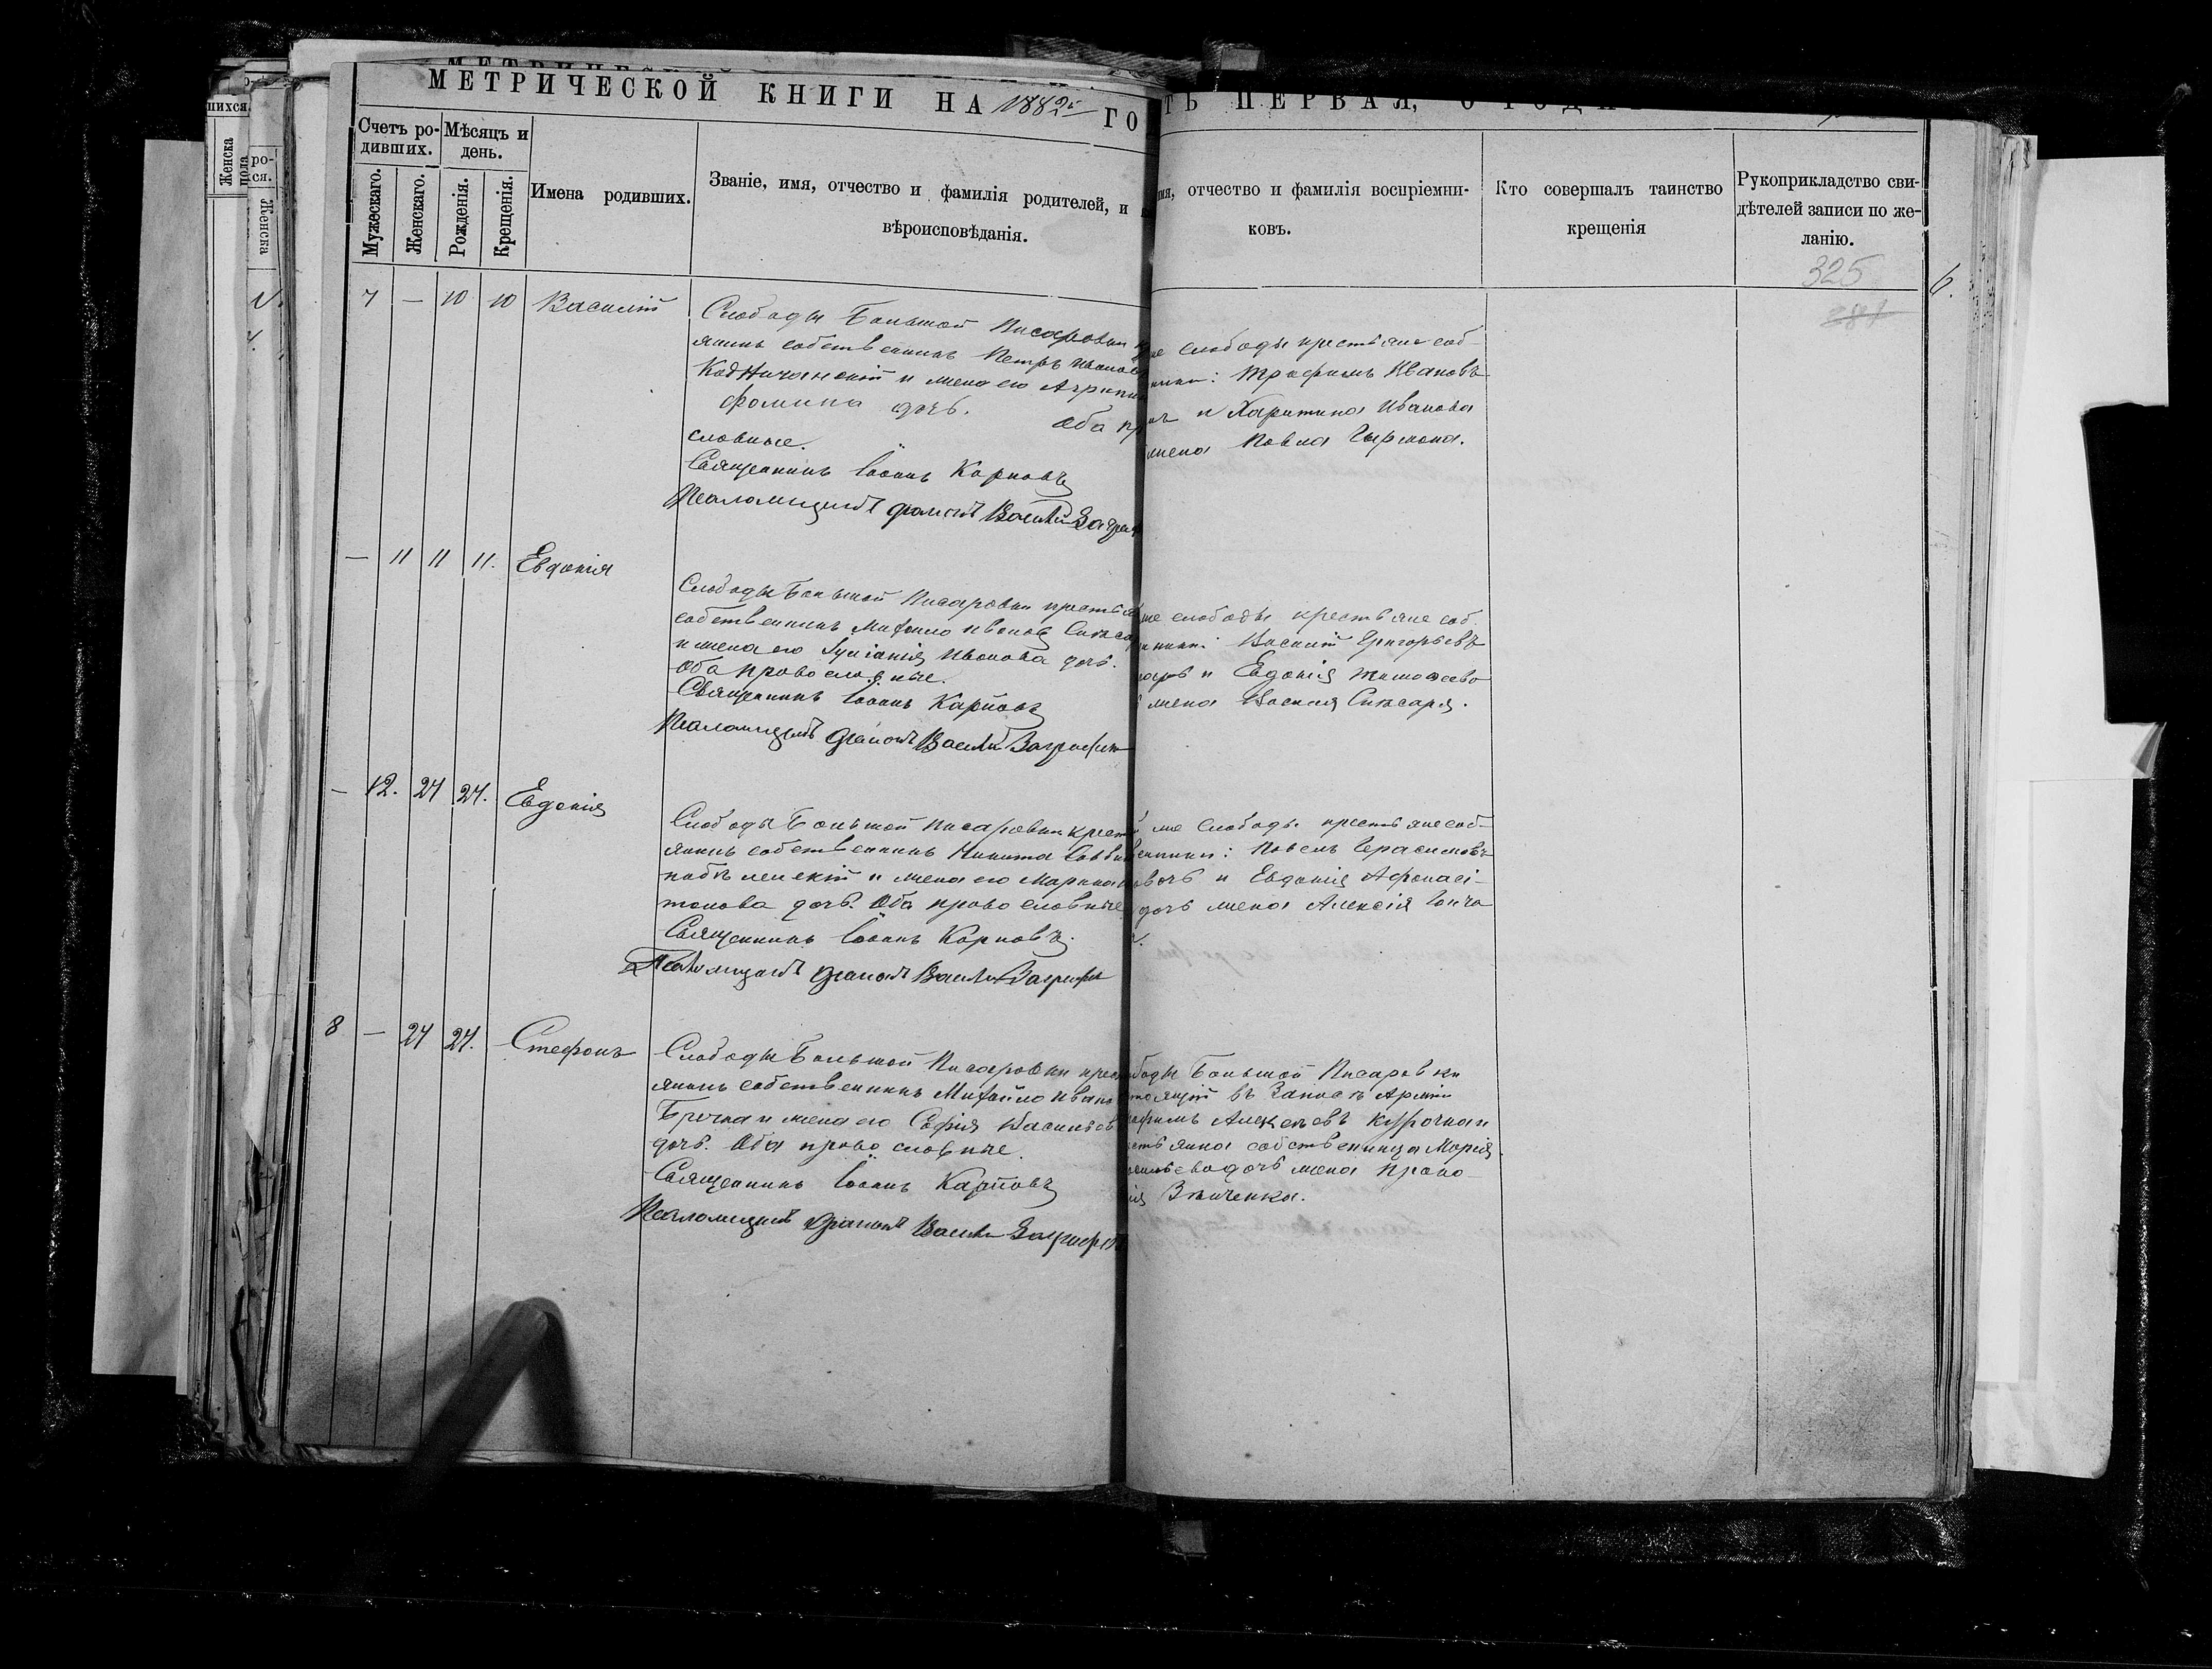 МЕТРИЧЕСКОЙ КНИГИ НА 1882й ГО
ТЬ ПЕРВАЯ, О РОДИ
Счетъ ро-
дивших.
Мѣсяцъ и
день.
Мужескаго.
Женскаго.
Рожденія.
Крещенія.
Имена родивших.
Званіе, имя, отчество и фамилія родителей, и
вѣроисповѣданія.
имя, отчество и фамилія воспріемни-
ковъ.
Кто совершалъ таинство
крещенія
Рукоприкладство сви-
дѣтелей записи по же-
ланію.
325
281
6.
7 — 10 10 Василій
Слободы Большой Писаровки
янинъ собственникъ Петръ Иванов
и жена его Агрипин
Фомина дочь. Оба пр
славные.
Священникъ Іоаннъ Карповъ
Псаломщикъ Василій
же слободы крестьяне соб-
ники: Трофимъ Ивановъ
и Харитина Иванова
жена Павла
— 11 11 11. Евдокія
Слободы Большой Писаровки крестья
собственникъ Михаило Ивановъ Слюсар
и жена его Іуліанія Иванова дочь.
Оба православные.
Священникъ Іоаннъ Карповъ
Псаломщикъ Василій
же слободы крестьяне соб.
нники: Василій Григорьевъ
сарь и Евдокія Тимофеева
жена Василія Слюсаря.
— 12. 24 24. Евдокія
Слободы Большой Писаровки крест
янинъ собственникъ Никита Савви
и жена его Марина
тонова дочь. Оба православные
Священникъ Іоаннъ Карповъ.
Псаломщикъ Василій
же Слободы крестьяне соб-
венники: Павелъ Герасимовъ
и Евдокія Афанасі-
дочь жена Алексія Гонча
8 — 24 24. Стефанъ
Слободы Большой Писаровки крест
янинъ собственникъ Михайло Иван
и жена его Софія Васильев
дочь. Оба православные.
Священникъ Іоаннъ Карповъ
Псаломщикъ Василій
ободы Большой Писаровки
тоящій въ Запасѣ Арміи
офимъ Алексѣевъ Курочка и
стьянка собственница Марія
дочь жена Проко
ія Зинченка.